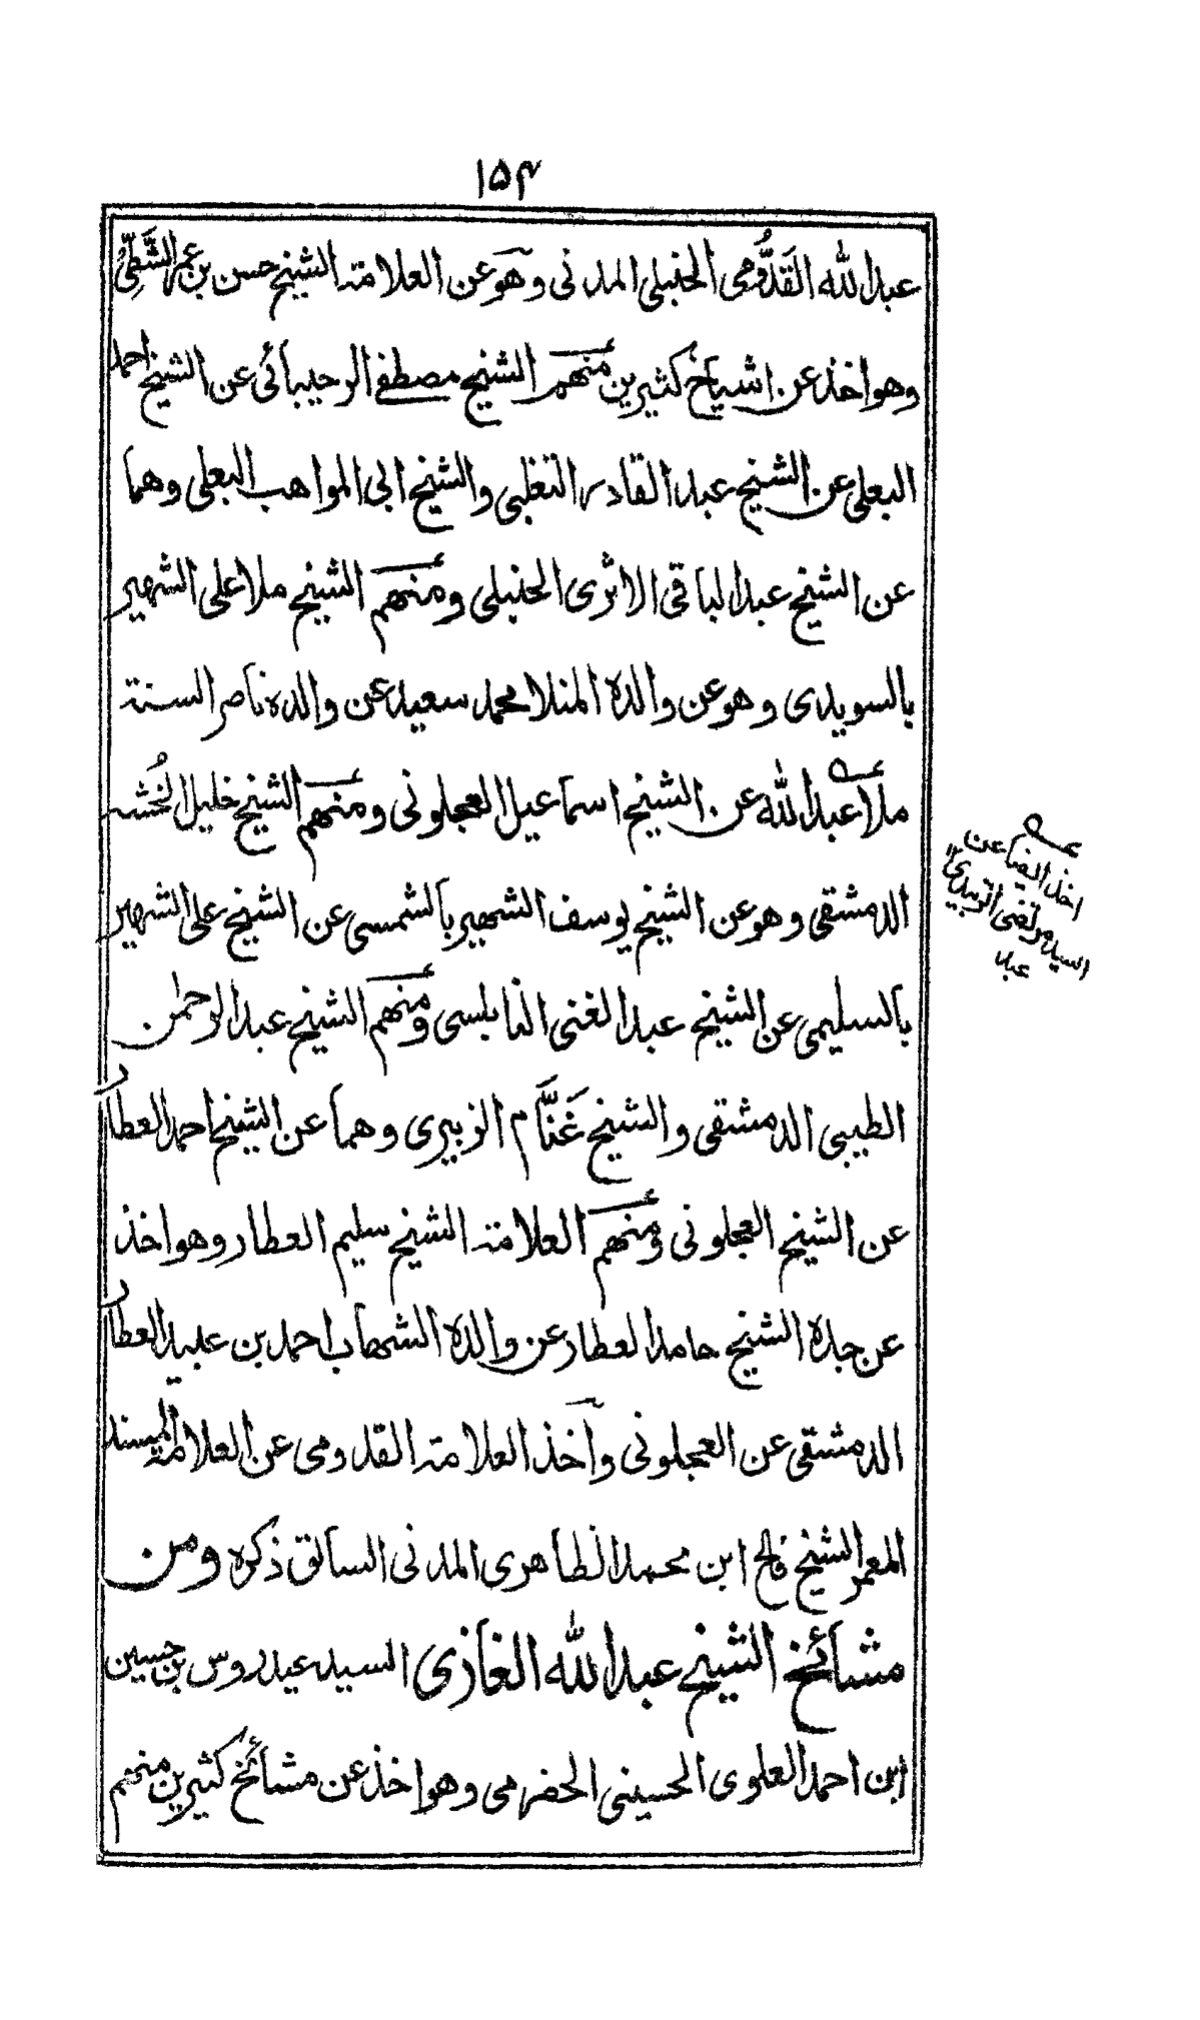 ١٥٤
عبد الله القَدُّومي الحنبلى المدنى وهو عن العلامة الشيخ حسن بن عمر الشَّطِّىْ
وهو اخذ عن اشياخ كثيرين منهم الشيخ مصطفى الرحيبائى عن الشيخ احمد
البعلى عن الشيخ عبد القادر التغلبى والشيخ ابى المواهب البعلى وهما
عن الشيخ عبد الباقى الاثرى الحنبلى ومنهم الشيخ ملا على الشهير
بالسويدى وهو عن والده المنلا محمد سعيد عن والده ناصر السنة
ملا عبد الله عن الشيخ اسماعيل العجلونى ومنهم الشيخ خليل الخُشه
الدمشقى وهو عن الشيخ يوسف الشهير بالشمسى عن الشيخ على الشهير
بالسليمى عن الشيخ عبد الغنى النابلسى ومنهم الشيخ عبد الرحمن
الطيبى الدمشقى والشيخ غَنَّام الزبيرى وهما عن الشيخ احمد العطار
عن الشيخ العجلونى ومنهم العلامة الشيخ سليم العطار وهو اخذ
عن جده الشيخ حامد العطار عن والده الشهاب احمد بن عبيد العطار
الدمشقى عن العجلونى وآخذ العلامة القدومى عن العلامة المسند
المعمر الشيخ فالح ابن محمد الظاهرى المدنى السابق ذكره ومن
مشائخ الشيخ عبد الله الغازى السيد عيدروس بن حسين
ابن احمد العلوى الحسينى الحضرمى وهو اخذ عن مشائخ كثيرين منهم
عه
اخذ ايضا عن
السيد مرتضى الزبيدى ١١
عبد